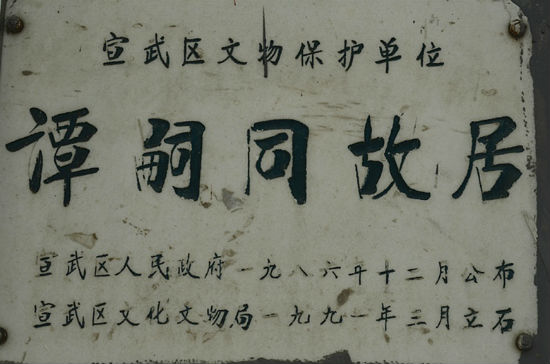 宣武区文物保护单位
谭嗣同故居
宣武区人民政府一九八六年十二月公布
宣武区文化文物局一九九一年三月立石